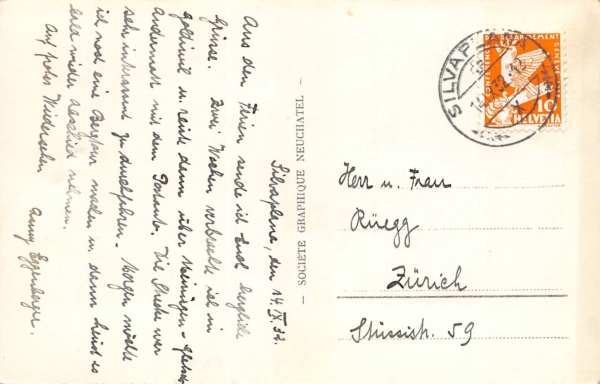 Silvaplana, den 14. IX 32.
Aus den Ferien sende ich Euch herzliche
Grüsse. Zwei Wochen verbrachte ich in
und reiste dann über Meiringen -
Andermatt mit dem Postauto. Die Strecke war
sehr interessant zu durchfahren. Morgen möchte
ich noch eine Bergtour machen u. dann heisst es
wieder Abschied nehmen.
Auf frohes Wiedersehen
Anny Eggenberger.
— SOCIÉTÉ GRAPHIQUE NEUCHATEL —
SILVAPLANA
CONFERENCE DU DESARMEMENT GENEVE
10
HELVETIA
Herr u. Frau
Rüegg
Zürich
Stüssistr. 59